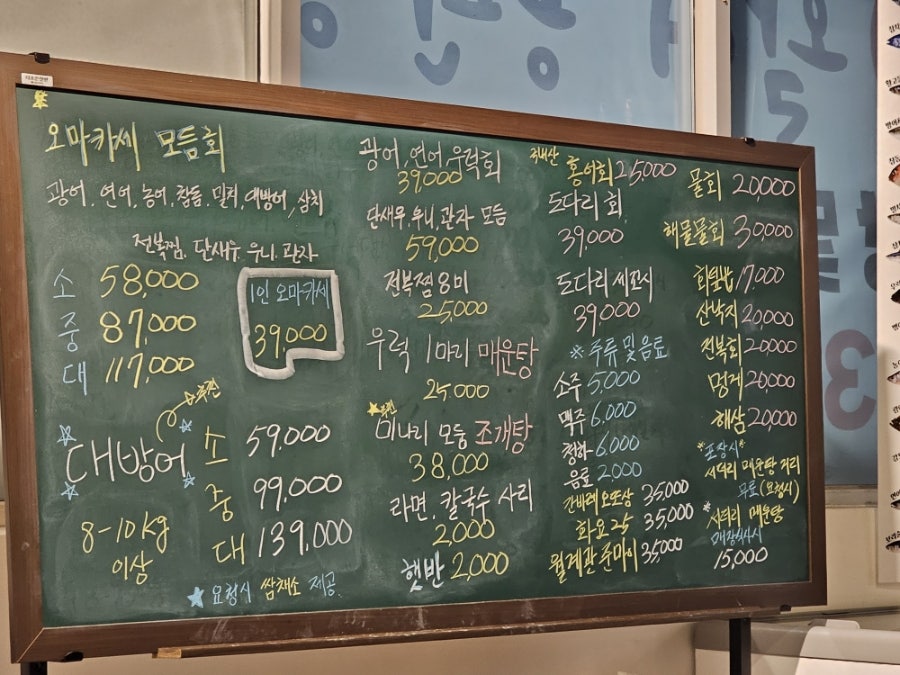 오마카세 모듬회
광어, 연어, 농어, 참돔, 밀치, 대방어, 삼치
전복찜, 단새우, 우니, 관자
소 58,000
중 87,000
대 117,000
1인 오마카세
39,000
추천
대방어
8-10kg
이상
소 59,000
중 99,000
대 139,000
★ 요청시 쌈채소 제공.
광어, 연어, 우럭회
39,000
단새우, 우니, 관자 모듬
59,000
전복찜 8미
25,000
우럭 1마리 매운탕
25,000
추천
미나리 모듬 조개탕
38,000
라면, 칼국수 사리
2,000
햇반 2,000
국내산 홍어회 25,000
도다리 회
39,000
도다리 세꼬시
39,000
※ 주류 및 음료
소주 5,000
맥주 6,000
청하 6,000
음료 2,000
간바레 오또상 35,000
화요25 35,000
월계관 준마이 35,000
물회 20,000
해물물회 30,000
회덮밥 17,000
산낙지 20,000
전복회 20,000
멍게 20,000
해삼 20,000
*포장시*
서더리 매운탕 거리
무료 (요청시)
*서더리 매운탕
매장식사시
15,000